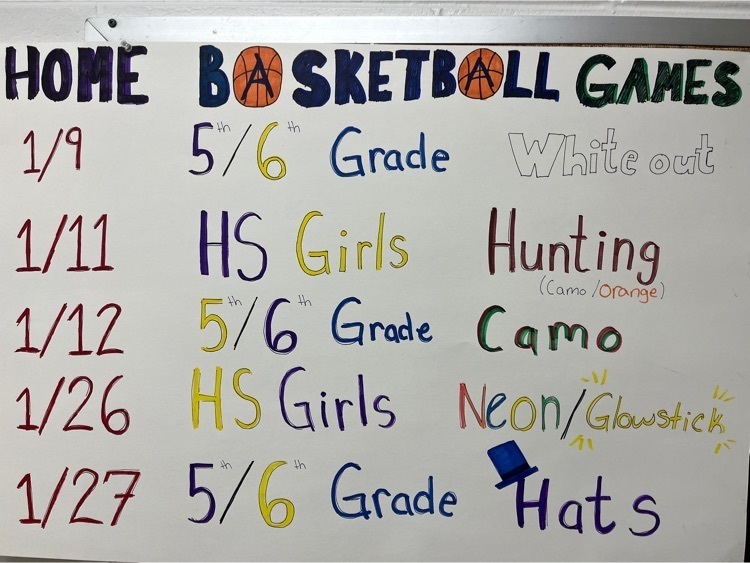 HOME BASKETBALL GAMES
1/9 5th/6th Grade White out
1/11 HS Girls Hunting
(Camo/Orange)
1/12 5th/6th Grade Camo
1/26 HS Girls Neon/Glowstick
1/27 5th/6th Grade Hats